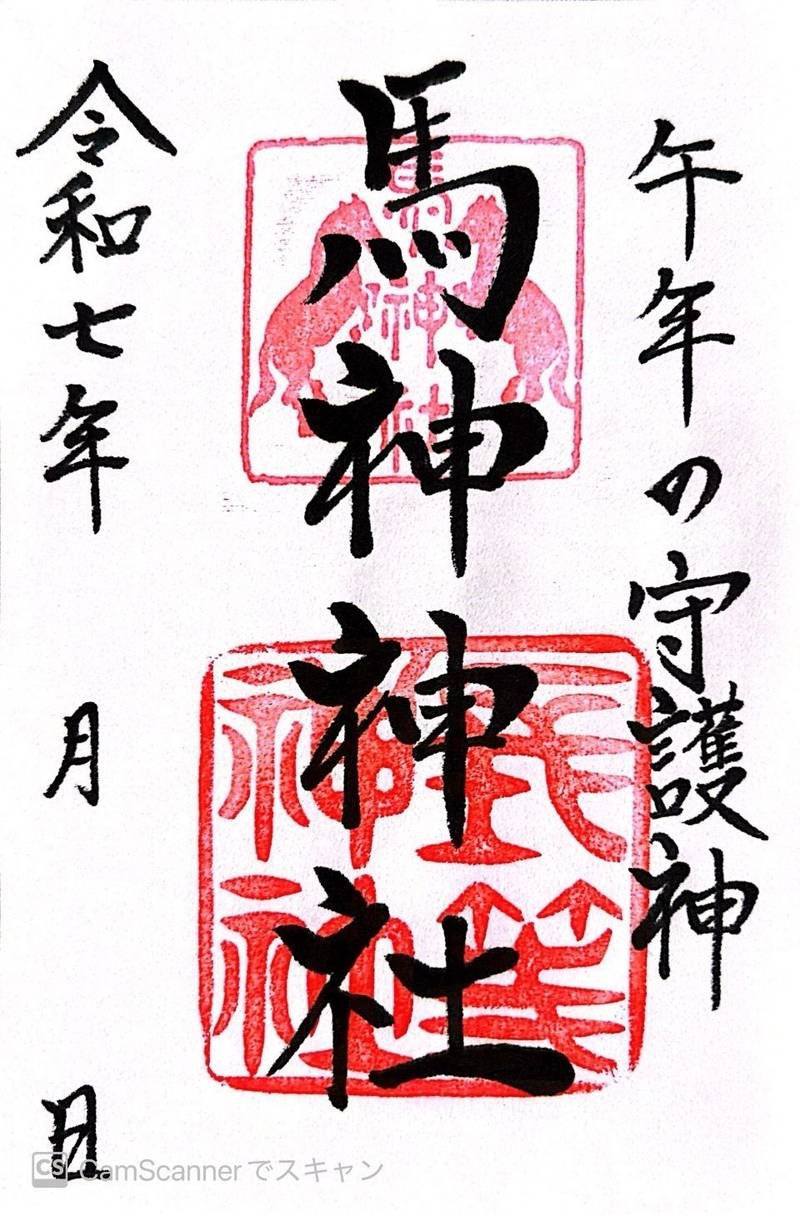 午年の守護神
馬神神社
馬神神社
令和七年 月 日
CS CamScannerでスキャン